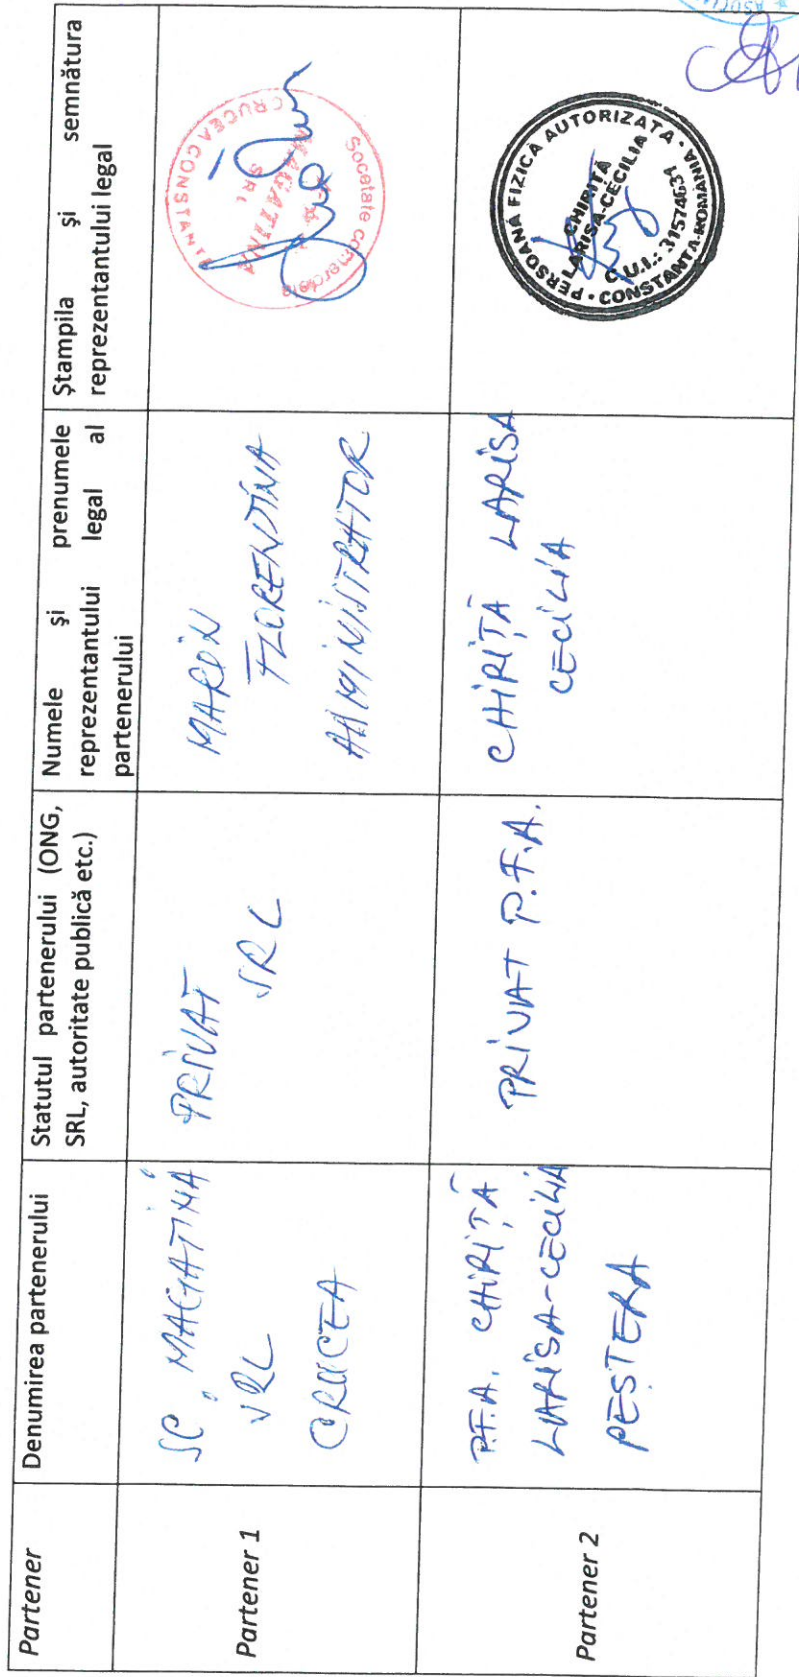 Partener
Denumirea partenerului
Statutul partenerului (ONG,
SRL, autoritate publică etc.)
Numele și prenumele
reprezentantului legal al
partenerului
Ștampila și semnătura
reprezentantului legal
Partener 1
SC. MAGATINA
SRL
CRUCEA
PRIVAT
SRL
MARIN
FLORENTINA
ADMINISTRATOR
CRUCEA CONSTANTA
MAGATINA
SRL
Societate comerciala
Partener 2
P.F.A. CHIRIȚĂ
LARISA-CECILIA
PEȘTERA
PRIVAT P.F.A.
CHIRIȚĂ LARISA
CECILIA
PERSOANĂ FIZICĂ AUTORIZATĂ
CHIRIȚĂ
LARISA-CECILIA
C.U.I.: 31574631
CONSTANȚA-ROMÂNIA